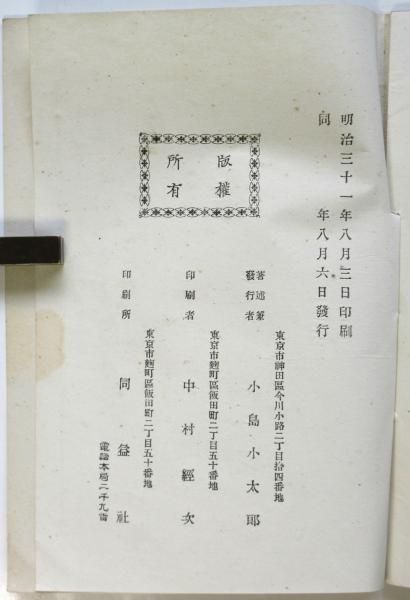 明治三十一年八月三日印刷
同　　　年八月六日發行
版權
所有
東京市神田區今川小路二丁目拾四番地
著述兼
發行者　小島小太郎
東京市麴町區飯田町二丁目五十番地
印刷者　中村經次
東京市麴町區飯田町二丁目五十番地
印刷所　同益社
電話本局二千九百